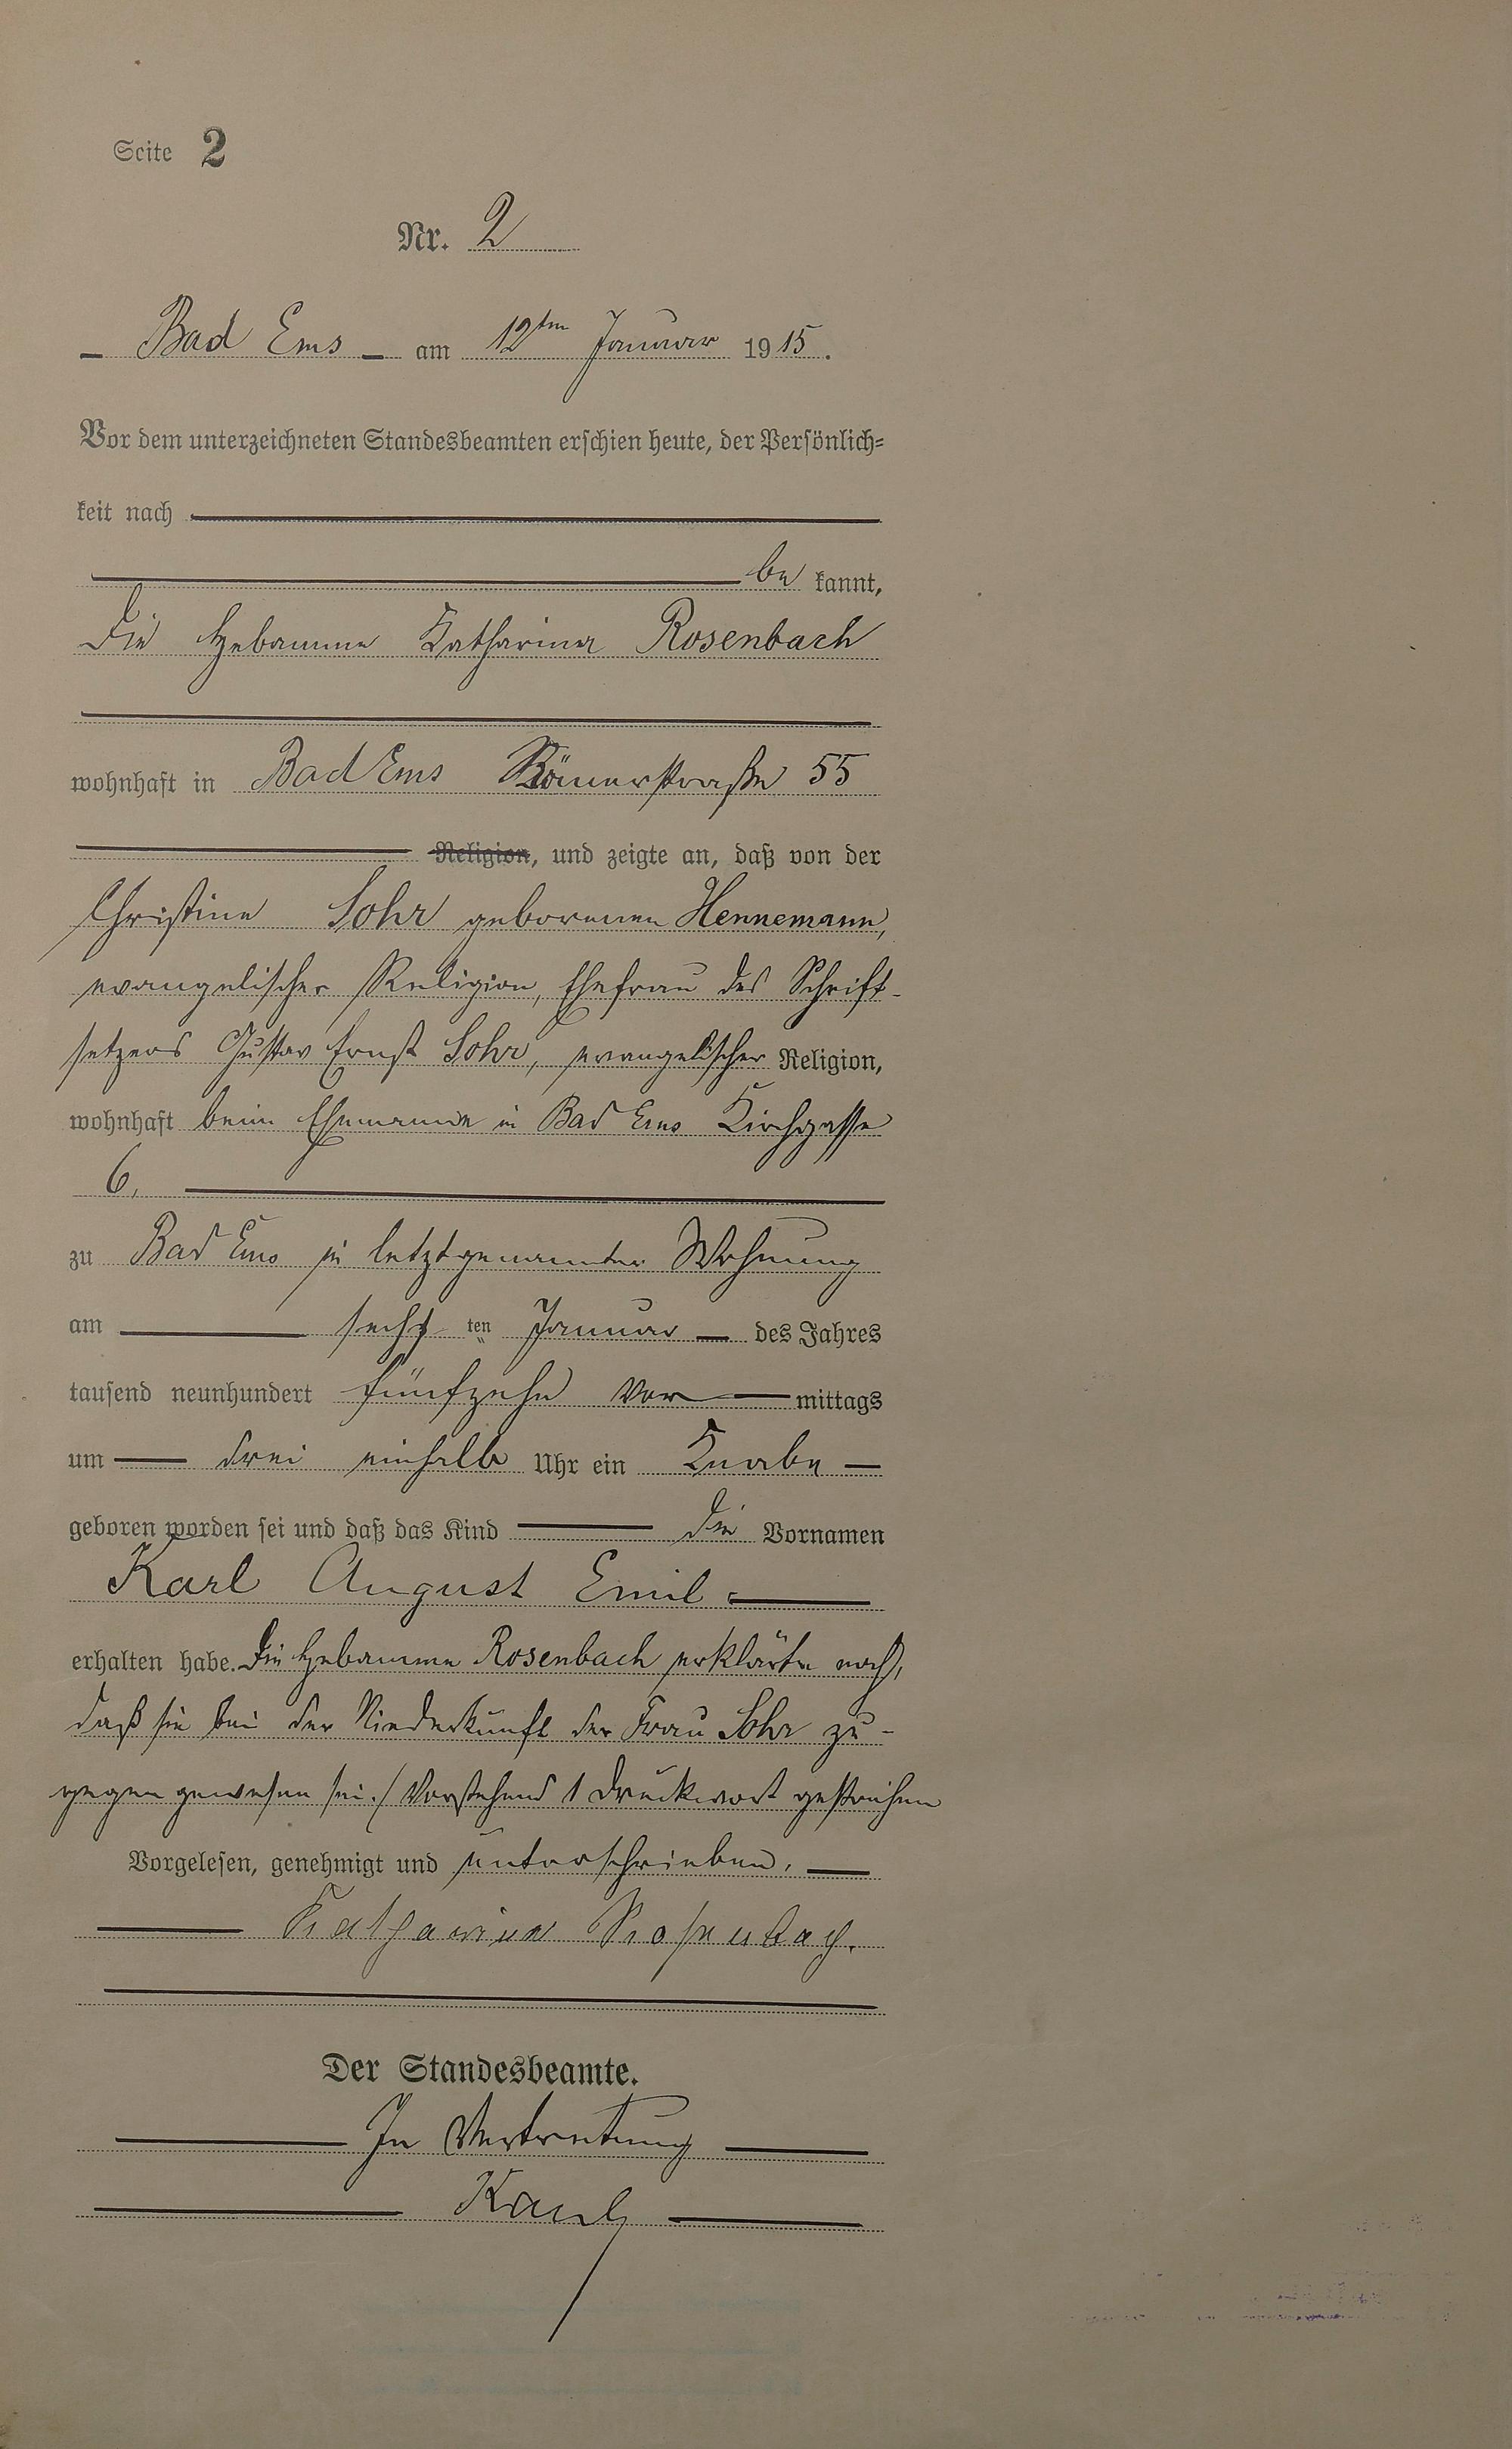 Seite 2
Nr. 2
Bad Ems am 12ten Januar 1915.
Vor dem unterzeichneten Standesbeamten erschien heute, der Persönlich=
keit nach
be kannt,
die Hebamme Katharina Rosenbach
wohnhaft in Bad Ems Römerstraße 55
Religion, und zeigte an, daß von der
Christine Sohr geborenen Hennemann,
evangelischer Religion, Ehefrau des Schrift-
setzers Gustav Ernst Sohr, evangelischer Religion,
wohnhaft beim Ehemanne in Bad Ems Kirchgasse
6,
zu Bad Ems in letztgenannter Wohnung
am sechsten Januar des Jahres
tausend neunhundert fünfzehn Vormittags
um drei einhalb Uhr ein Knabe
geboren worden sei und daß das Kind die Vornamen
Karl August Emil
erhalten habe. Die Hebamme Rosenbach erklärte noch,
daß sie bei der Niederkunft der Frau Sohr zu-
gegen gewesen sei./ Vorstehend 1 Druckwort gestrichen
Vorgelesen, genehmigt und unterschrieben.
Katharina Rosenbach.
Der Standesbeamte.
In Vertretung